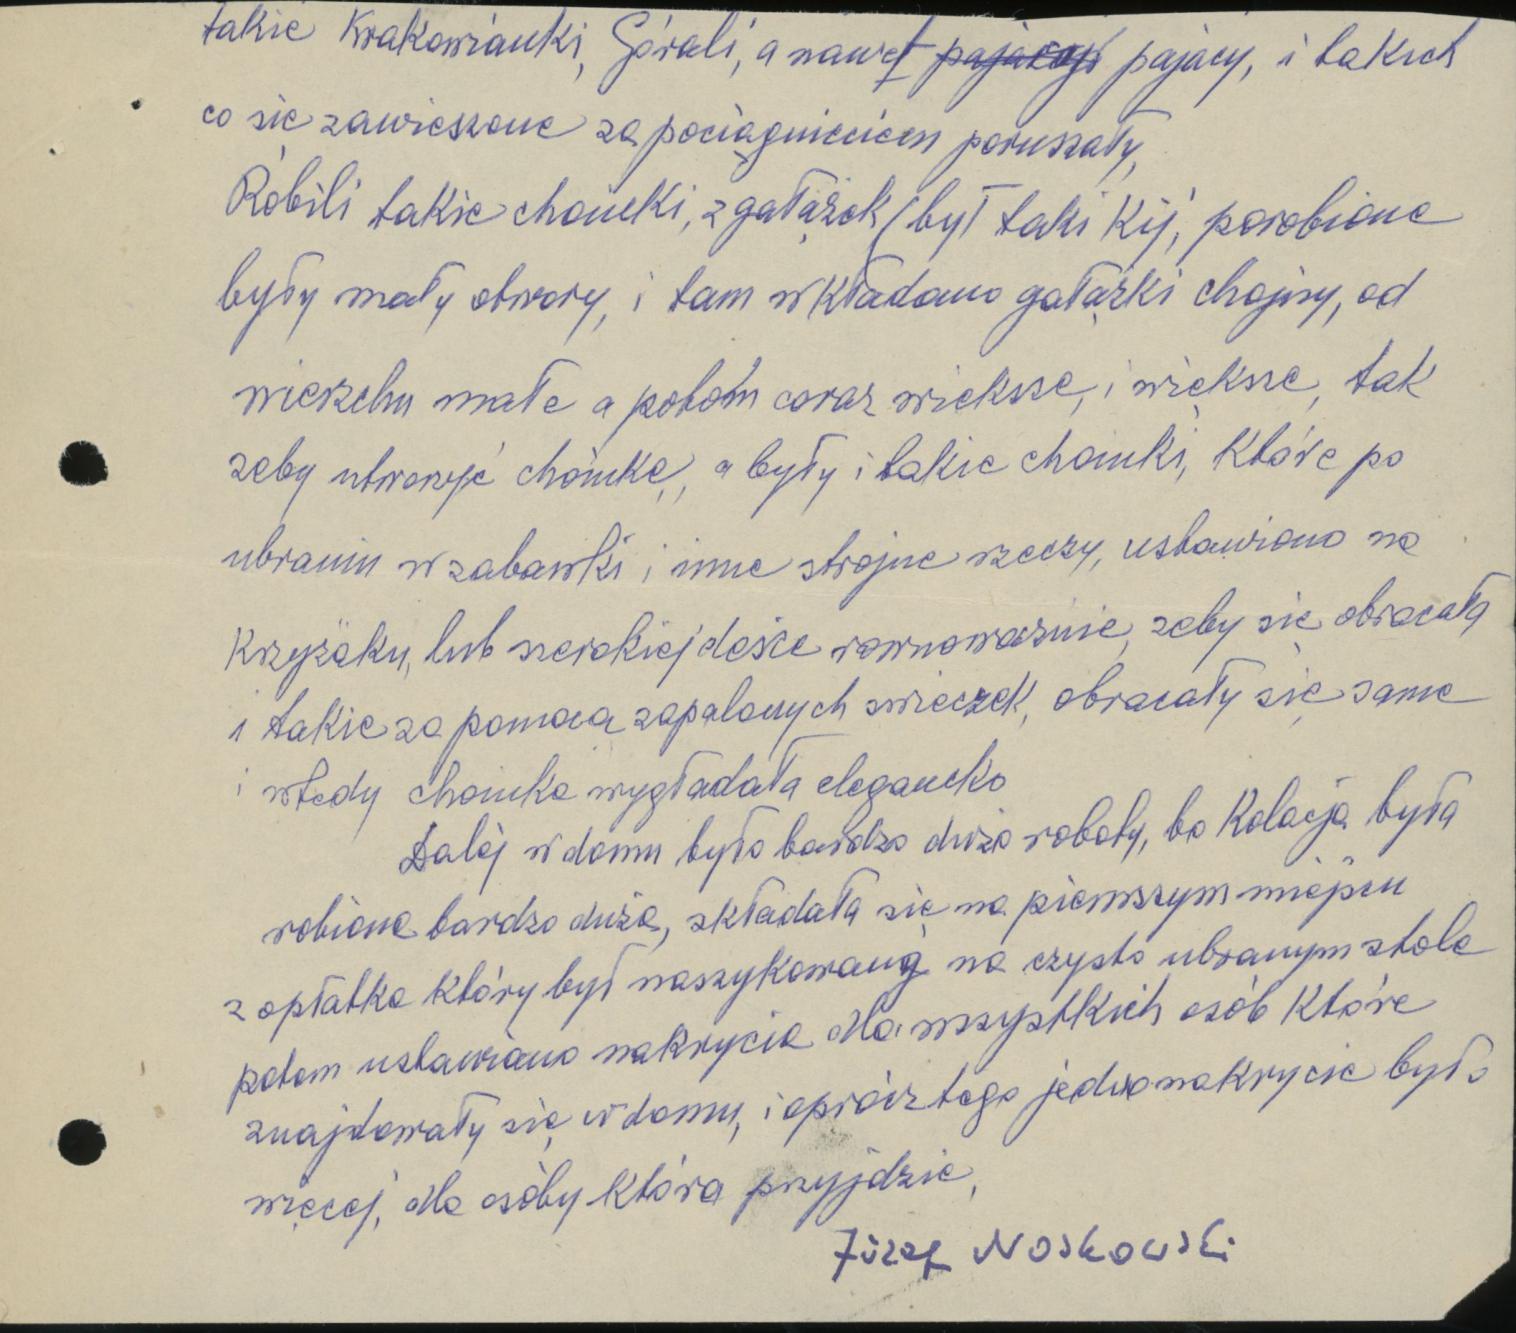 takie Krakowianki, Górali, a nawet pajacyi pajacy, i takich
co się zawieszone za pociągnięciem poruszały,
Robili takie choinki, z gałązek (był taki Kij, porobione
były mały otwory, i tam wkładano gałązki chojny, od
wierzchu małe a potom coraz wieksze, i większe, tak
zeby utworzyć choinkę, a były i takie choinki, które po
ubraniu w zabawki i inne strojne rzeczy, ustawiono na
Krzyżaku, lub szerokiej desce rownoważnie, zeby się obracała
i takie za pomocą zapalonych swieczek, obracały się same
i wtedy choinka wyglądała elegancko
Dalej w domu było bardzo dużo roboty, bo Kolacja była
robiona bardzo duża, składała się na pierwszym miejscu
z opłatka który był naszykowany na czysto ubranym stole
potem ustawiano nakrycia dla wszystkich osób które
znajdowały się w domu, i oprócz tego jedno nakrycie było
więcej, dla osóby która przyjdzie,
Józef Noskowski